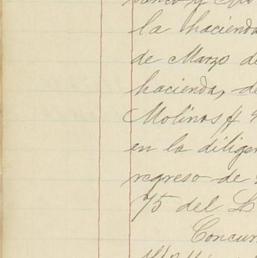 la hacienda
de Marzo de
hacienda, de
Molinos
en la dilige
regreso de
75 del L
Concur